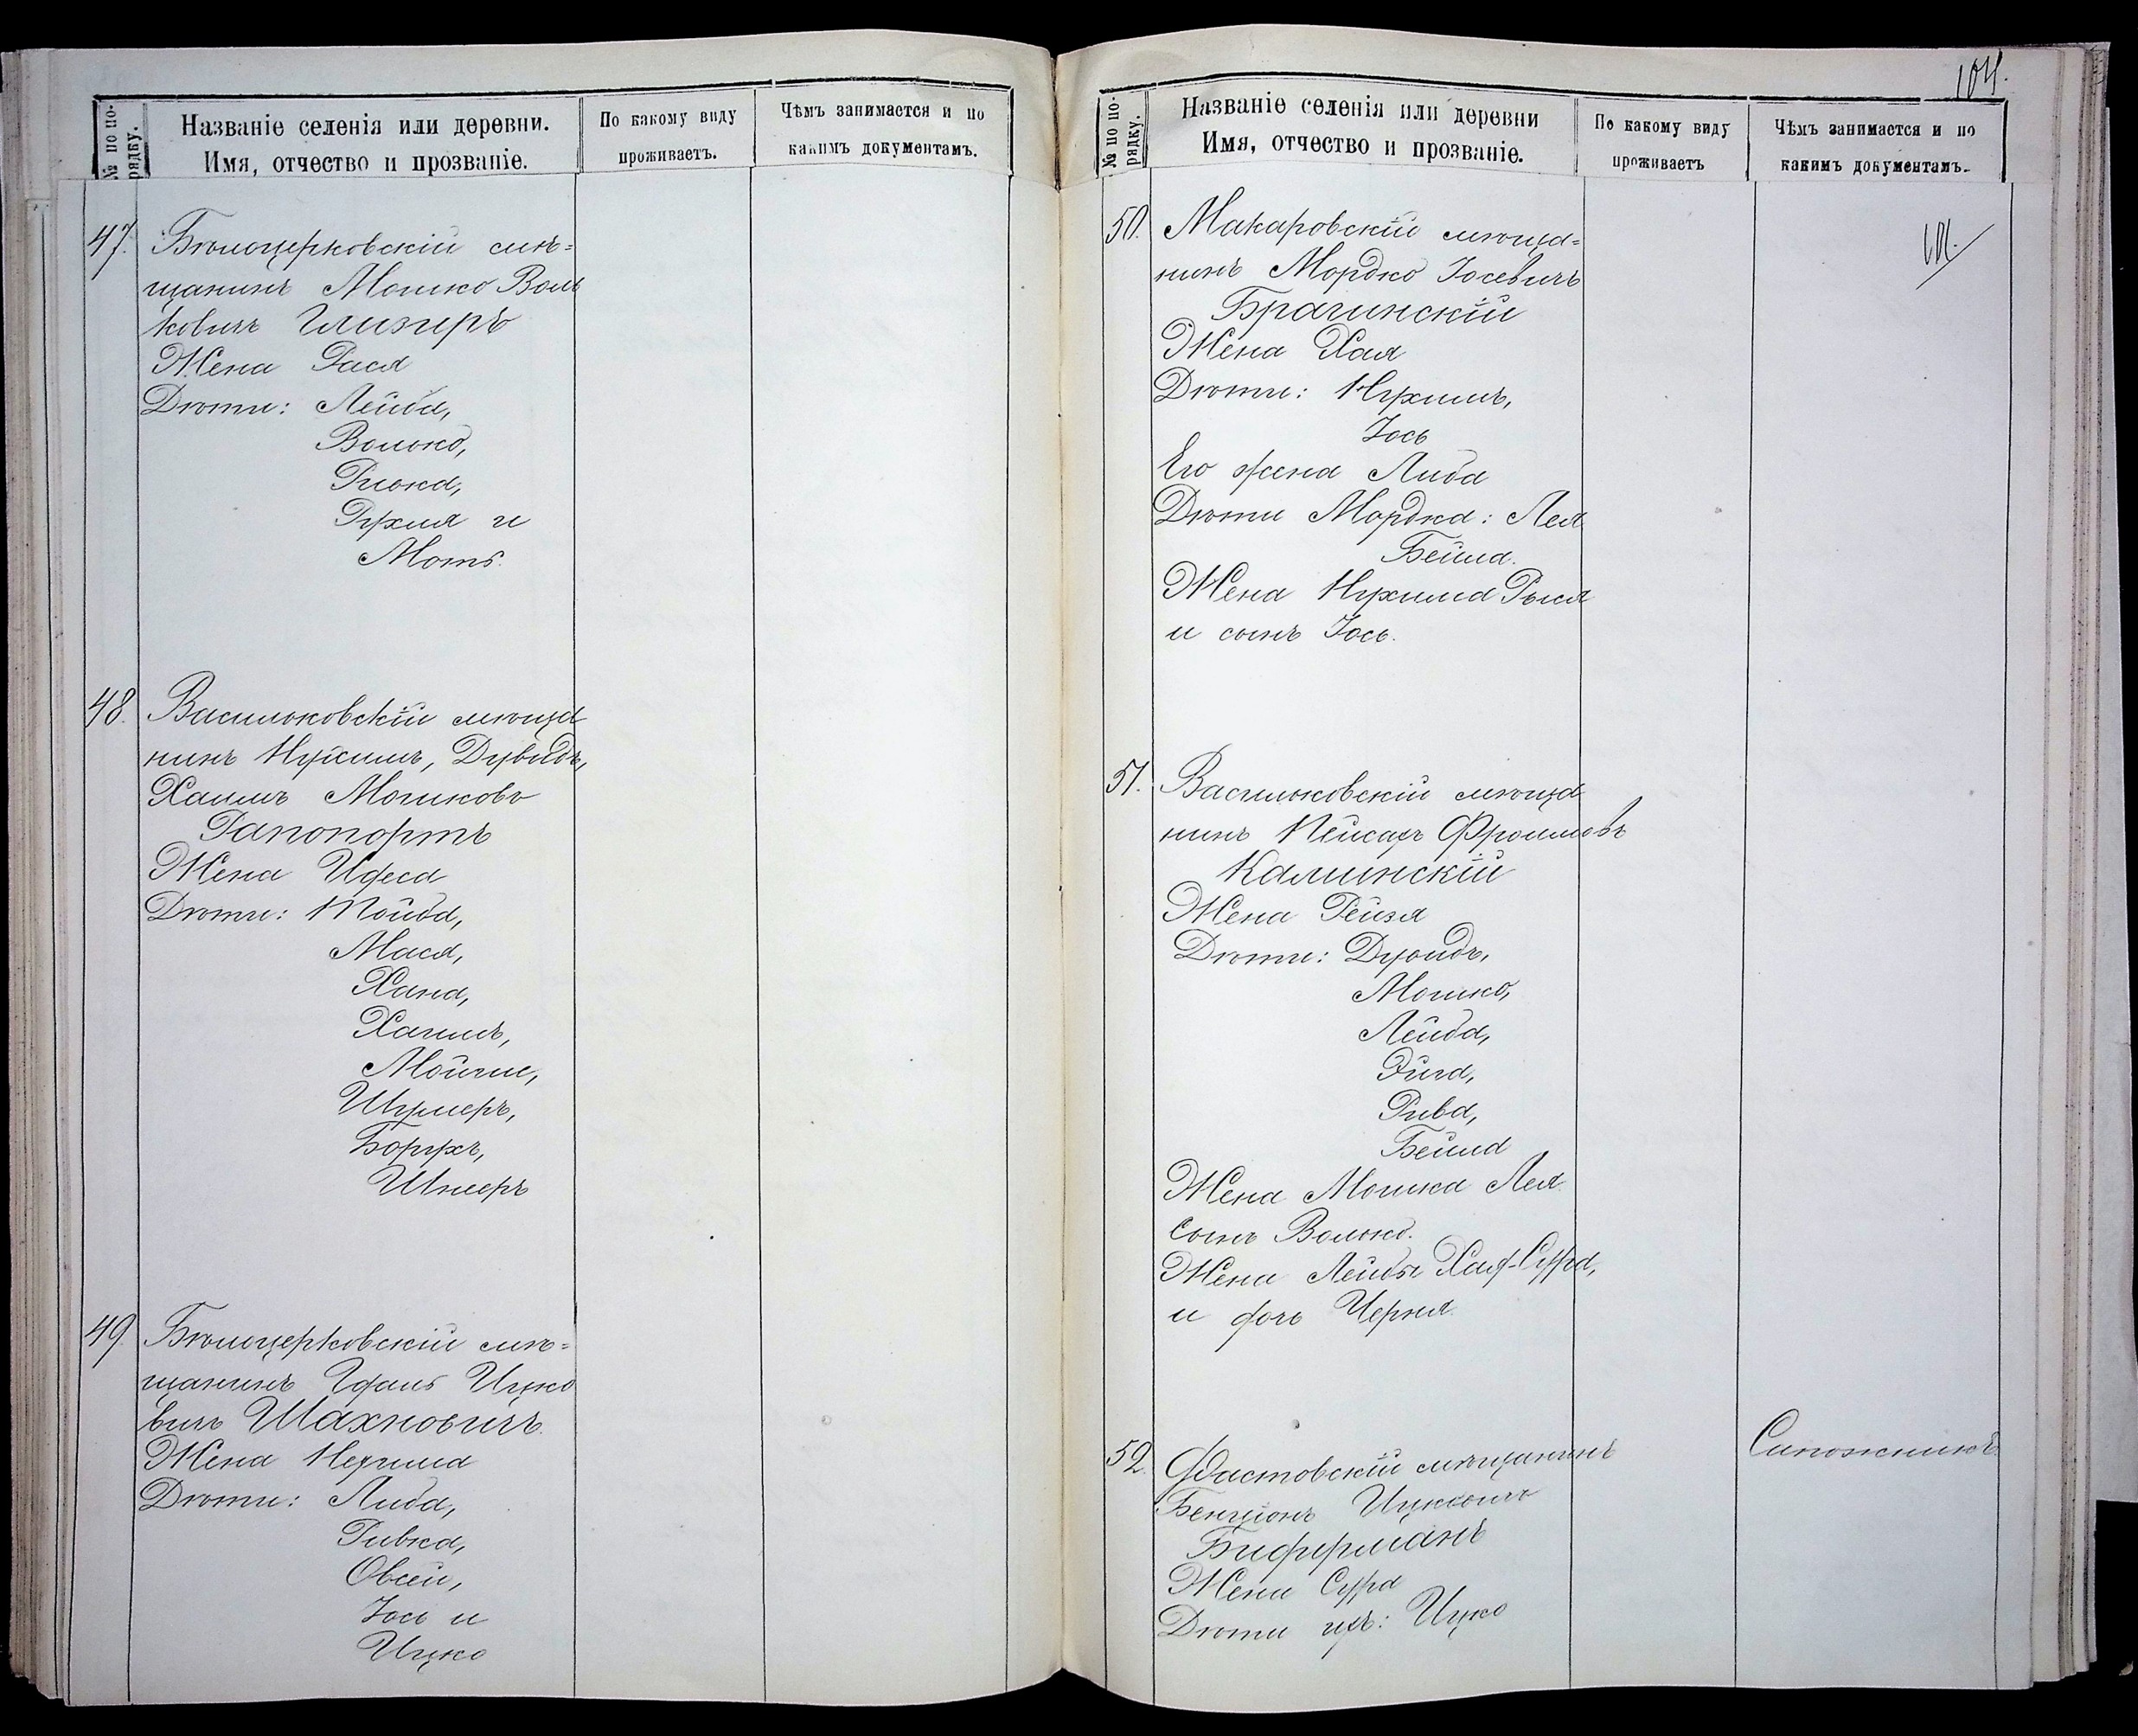 № по по-
рядку.
Названіе селенія или деревни.
Имя, отчество и прозваніе.
По какому виду
проживаетъ.
Чѣмъ занимается и по
какимъ документамъ.
47. Бѣлоцерковскій мѣ=
щанинъ Мошко Воль
ковичъ Глизеръ
Жена Рася
Дѣти: Лейба,
Волько,
Рухля и
Моть.
48. Васильковскій мѣща
нинъ Нухимъ, Дувидъ,
Хаимъ Мошково
Рапопортъ
Жена Идеса
Дѣти: Тойба,
Мася,
Хана,
Хаимъ,
Мойше,
Шулимеръ,
Борухъ,
Шмеръ
49. Бѣлоцерковскій мѣ=
щанинъ Идаль Ицко
вичъ Шахновичъ.
Жена Нехума
Дѣти: Либа,
Ривка,
Овсей,
Іось и
Ицко
104.
№ по по-
рядку.
Названіе селенія или деревни
Имя, отчество и прозваніе.
По какому виду
проживаетъ
Чѣмъ занимается и по
какимъ документамъ.
50. Макаровскій мѣща=
нинъ Мордко Іосевичъ
Брагинскій
Жена Хая
Дѣти: Нухимъ,
Іось
Его жена Либа
Дѣти Мордка: Лея
Бейла.
Жена Нухима Рыся
и сынъ Іось.
51. Васильковскій мѣща
нинъ Пейсахъ Фроимовъ
Калинскій
Жена Рейзя
Дѣти: Дувидъ,
Мошко,
Лейба,
Эйга,
Рива,
Бейла
Жена Мошка Лея.
Сынъ Волько.
Жена Лейбы Хая-Сура,
и дочь Черня.
52. Фастовскій мѣщанинъ
Бенціонъ Ицковичъ
Жена Сура
Дѣти ихъ: Ицко
Сапожникъ